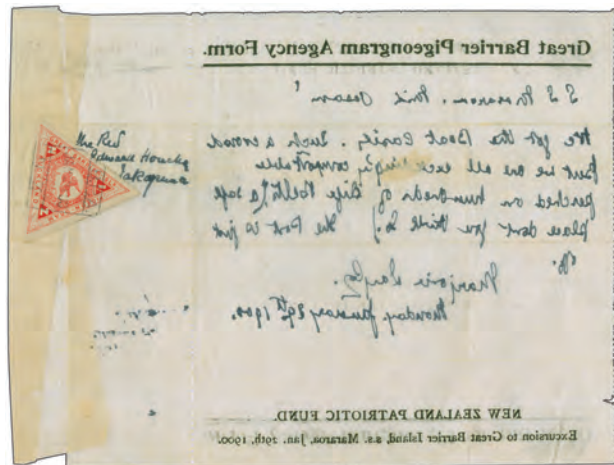 Great Barrier Pigeongram Agency Form.
S S Mararoa. Mid Ocean
We got the Boat easily. Such a crowd
but we are all comfortable
perched on hundreds of Life Belts! (a safe
place dont you think so) The Post is just
off.
Marjorie
Monday January 29th 1900.
The Rev
Edward
Takapuna
NEW ZEALAND PATRIOTIC FUND.
Excursion to Great Barrier Island, s.s. Mararoa, Jan. 29th, 1900.